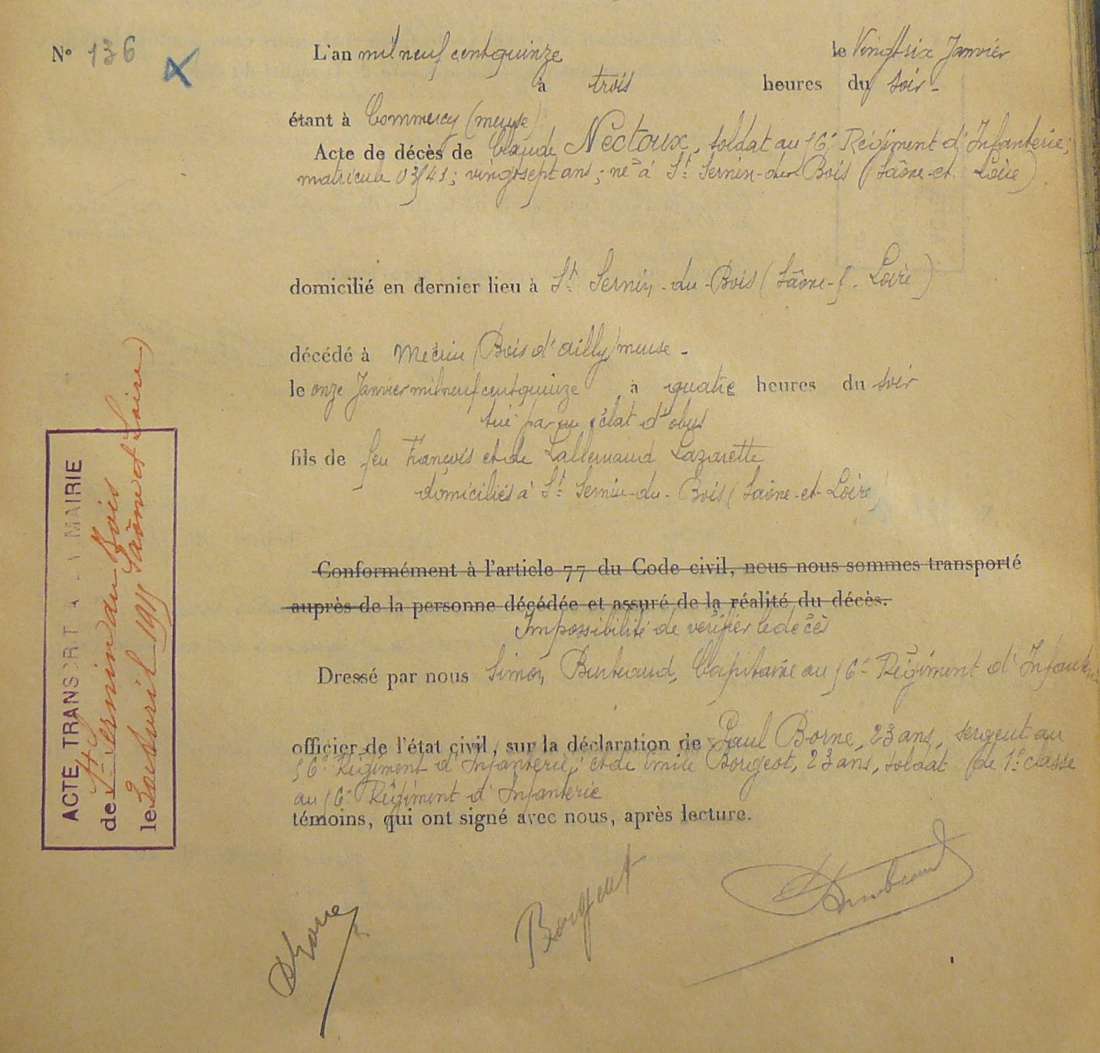 N° 136
L'an mil neuf cent quinze le Vingt six Janvier
à trois heures du soir -
étant à Commercy (meuse)
Acte de décès de Claude Nectoux, soldat au 56e Régiment d'Infanterie;
matricule 03741; vingt sept ans; né à St Sernin-du-Bois (Saône-et-Loire)
domicilié en dernier lieu à St Sernin-du-Bois (Saône-&-Loire)
décédé à Mécrin (Bois d'ailly) meuse -
le onze Janvier mil neuf cent quinze à quatre heures du soir
tué par un éclat d'obus
fils de feu François et de Lallemand Lazarette
domiciliés à St Sernin-du-Bois (Saône-et-Loire)
Conformément à l'article 77 du Code civil, nous nous sommes transporté
auprès de la personne décédée et assuré de la réalité du décès.
Impossibilité de vérifier le décès
Dressé par nous Simon, Capitaine au 56e Régiment d'Infanterie
officier de l'état civil, sur la déclaration de Paul Borne, 23 ans, sergent au
56e Régiment d'Infanterie; et de Emile Bougeot, 23 ans, soldat de 1e classe
au 56e Régiment d'Infanterie
témoins, qui ont signé avec nous, après lecture.
ACTE TRANSCRIT A LA MAIRIE
de St Sernin du Bois
le Avril 1915 (Saône et Loire)